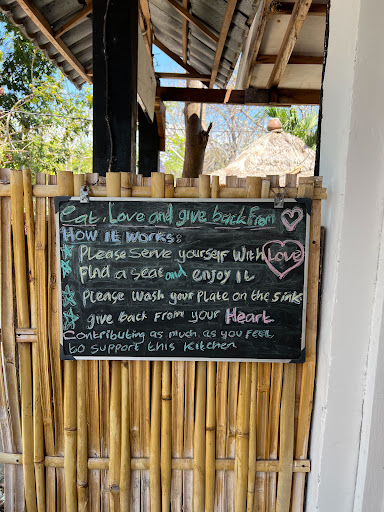 Eat, Love and give back from ♡
How it works:
☆ Please serve yourself with Love
☆ find a seat and enjoy it
☆ Please wash your plate on the sink
☆ give back from your Heart
Contributing as much as you feel
to support this kitchen